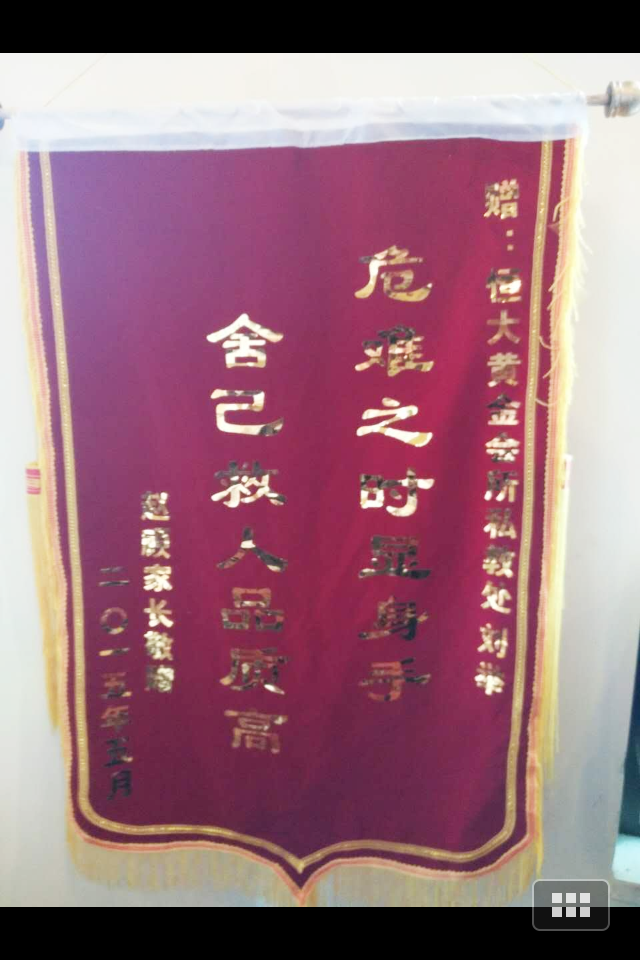 赠：恒大黄金会所私教处刘举
危难之时显身手
舍己救人品质高
赵颀家长敬赠
二〇一五年五月